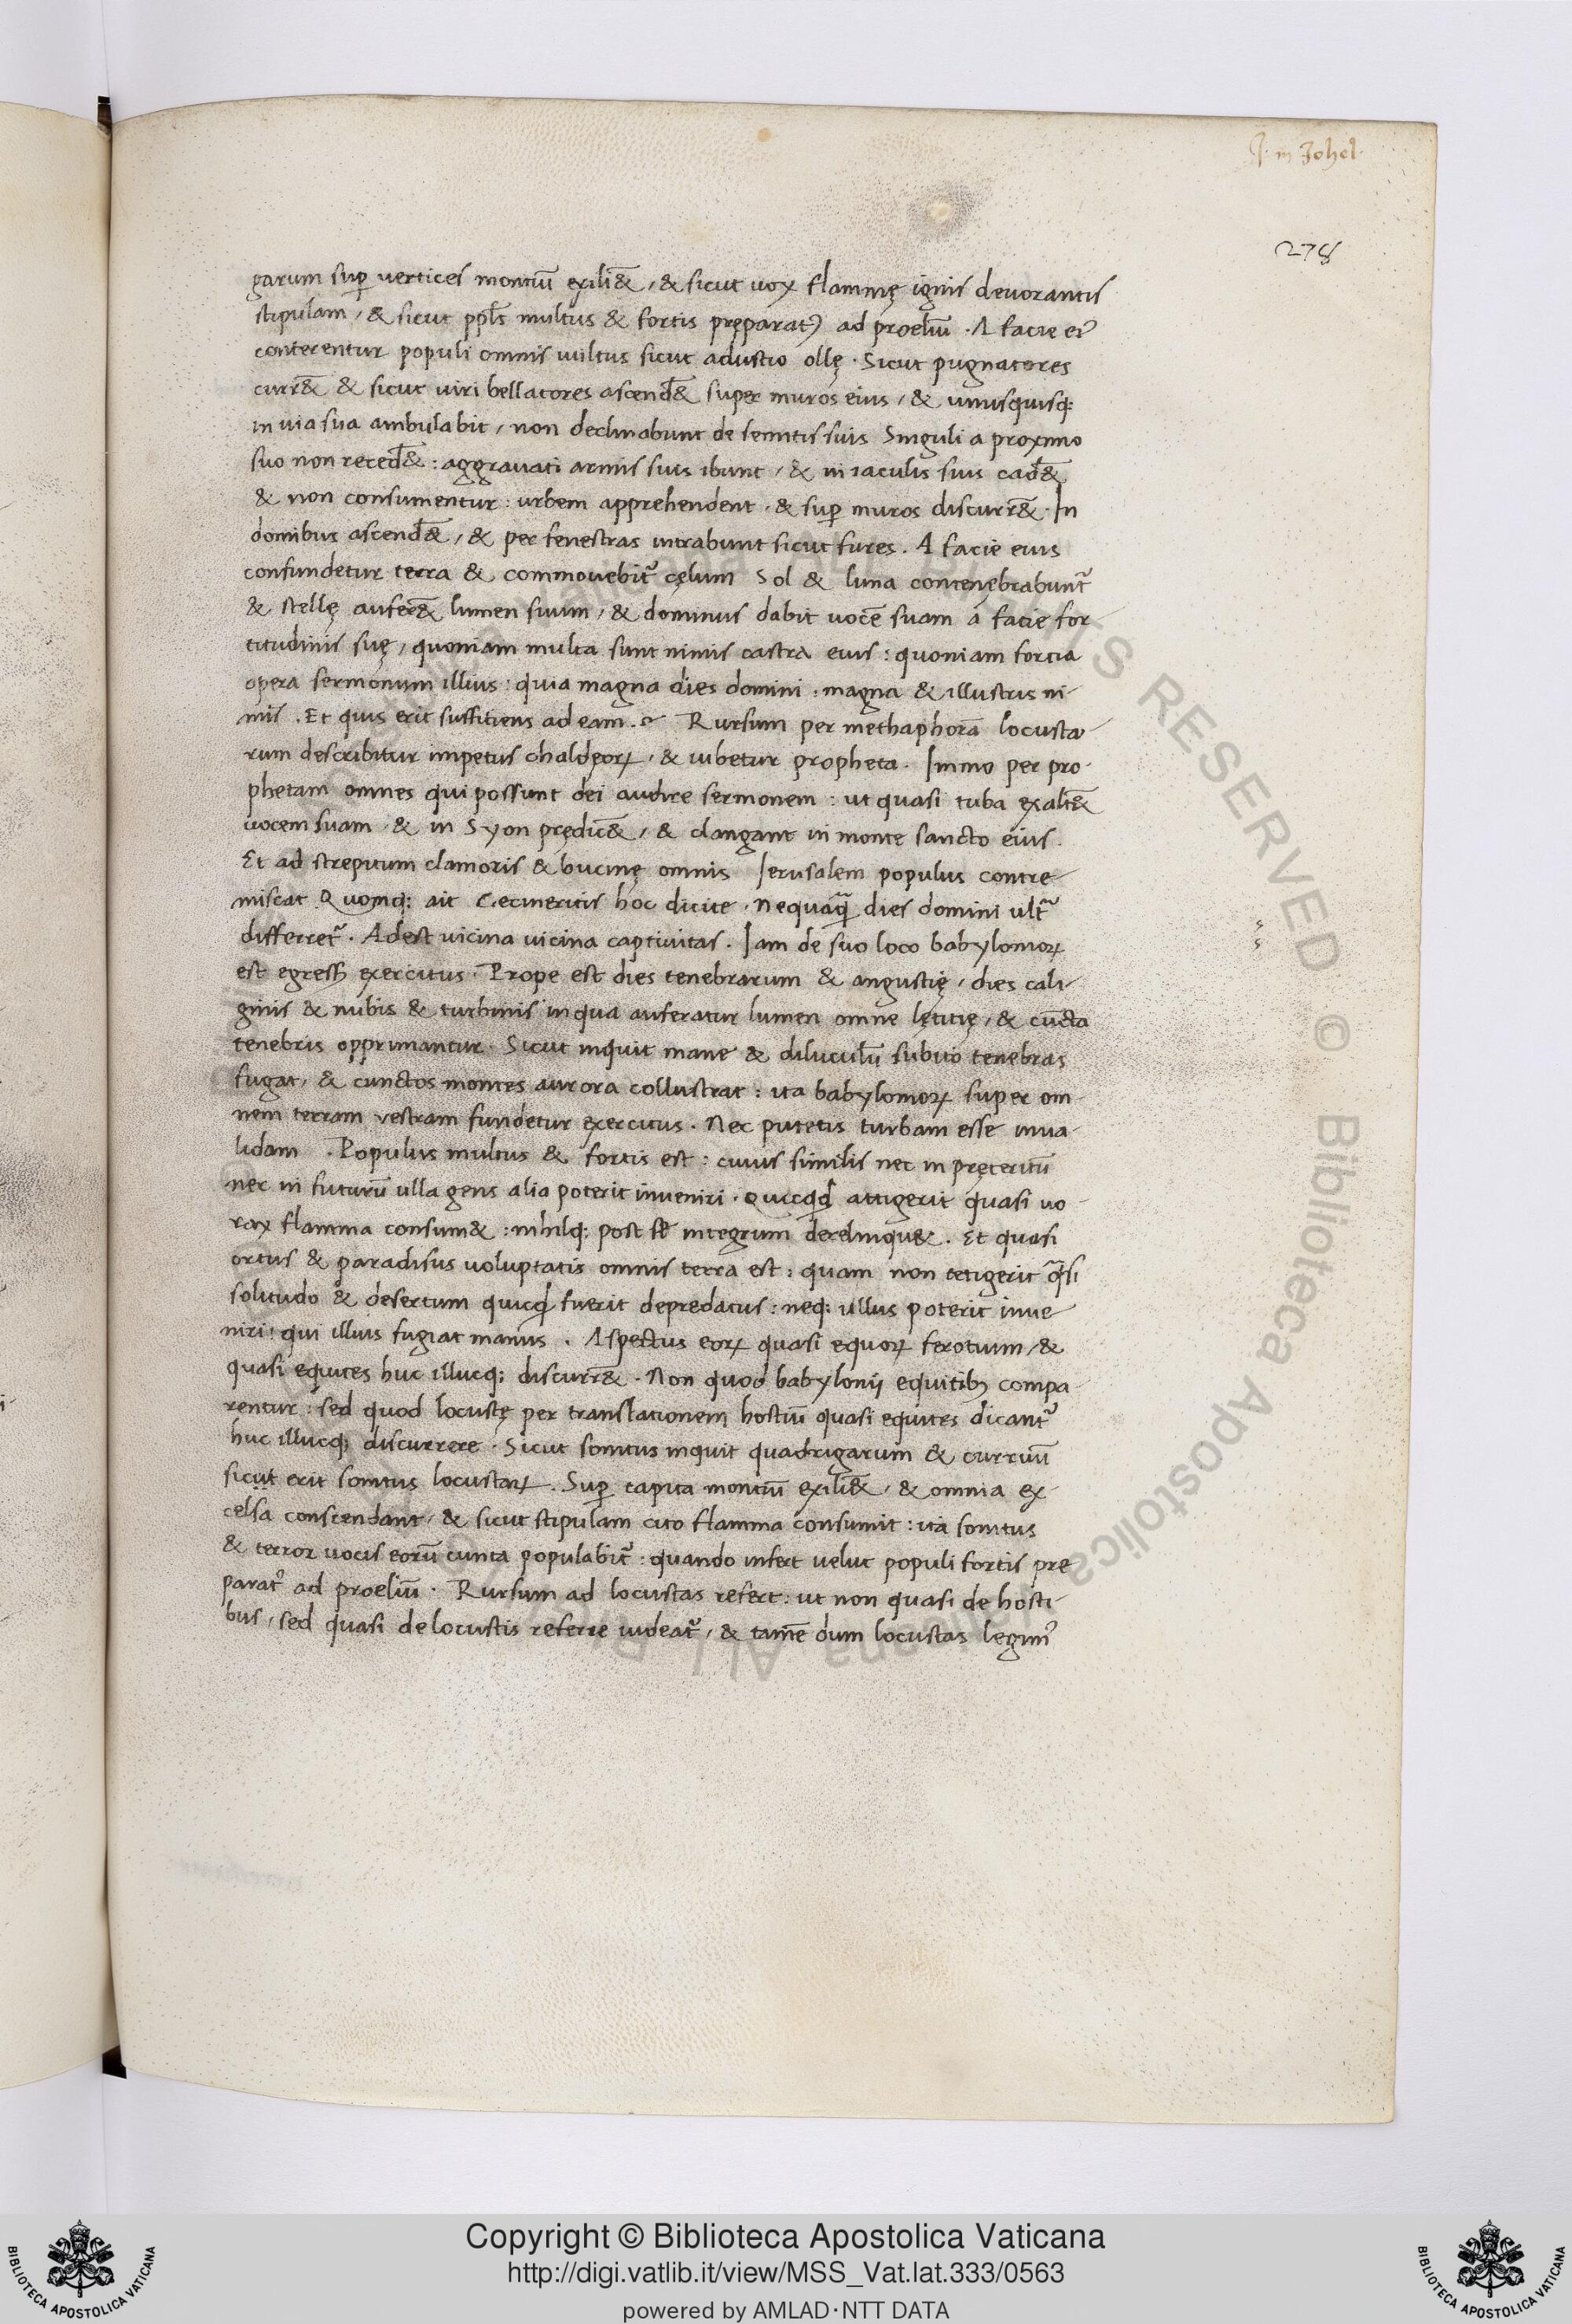 J. in Johel.
278
garum suꝑ vertices montiū exiliē&, & sicut uox flammę ignis devorantis
stipulam, & sicut ppl̄s multus & fortis pręparatꝰ ad proeliū. A facie eiꝰ
conterentur populi omnis vultus sicut adustio ollę. Sicut pugnatores
currē& & sicut viri bellatores ascendē& super muros eius, & unusquisq;
in via sua ambulabit, non declinabunt de semitis suis Singuli a proximo
suo non recedē&: aggravati armis suis ibunt, & in iaculis suis cadē&
& non consumentur: urbem apprehendent, & suꝑ muros discurrē&. In
domibus ascendē&, & per fenestras intrabunt sicut fures. A facie eius
confundetur terra & commovebit᷑ cęlum Sol & luna contenębrabunt᷑
& stellę auferē& lumen suum, & dominus dabit vocē suam a facie for
titudinis suę, quoniam multa sunt nimis castra eius: quoniam fortia
opera sermonum illius: quia magna dies domini: magna & illustris ni-
mis. Et quis erit sufficiens ad eam.? Rursum per methaphorā locusta
rum describitur impetus chaldęoꝝ, & iubetur propheta. Immo per pro-
phetam omnes qui possunt dei audire sermonem: ut quasi tuba exaltē&
vocem suam & in Syon prędicē&, & clangant in monte sancto eius.
Et ad strepitum clamoris & bucinę omnis Jerusalem populus contre
miscat Quomq; ait Cecineritis hoc dicite. nequaꝗ̄ dies domini ult᷑
differret᷑. Adest vicina vicina captivitas. Jam de suo loco babylonioꝝ
est egressꝰ exercitus. Prope est dies tenebrarum & angustię, dies cali-
ginis & nubis & turbinis in qua auferatur lumen omne lętitię, & cūcta
tenebris opprimantur. Sicut inquit mane & diluculū subito tenebras
fugat, & cunctos montes aurora collustrat: ita babylonioꝝ super om
nem terram vestram fundetur exercitus. Nec putetis turbam esse inva-
lidam. Populus multus & fortis est: cuius similis nec in pręteritū
nec in futurū ulla gens alia poterit inveniri. Quicqͥd attigerit quasi vo-
rax flamma consum&: nihilq; post sē integrum derelinqu&. Et quasi
ortus & paradisus voluptatis omnis terra est: quam non tetigerit q̄si
solitudo & desertum quicqͥd fuerit depredatus: neq; ullus poterit inve
niri: qui illius fugiat manus. Aspectus eoꝝ quasi equoꝝ ferotium, &
quasi equites huc illucq; discurrē&. Non quod babylonij equitibꝫ compa-
rentur: sed quod locustę per translationem hostiū quasi equites dicant᷑
huc illucq; discurrere. Sicut sonitus inquit quadrigarum & curruū
sicut erit sonitus locustaꝝ. Suꝑ capita montiū exiliē&, & omnia ex-
celsa conscendant, & sicut stipulam cito flamma consumit: ita sonitus
& terror vocis eorū cunta populabit᷑: quando infert velut populi fortis pre
paratꝰ ad proeliū. Rursum ad locustas refert: ut non quasi de hosti-
bus, sed quasi de locustis referre videat᷑, & tamē dum locustas legimꝰ
Copyright © Biblioteca Apostolica Vaticana
http://digi.vatlib.it/view/MSS_Vat.lat.333/0563
powered by AMLAD·NTT DATA